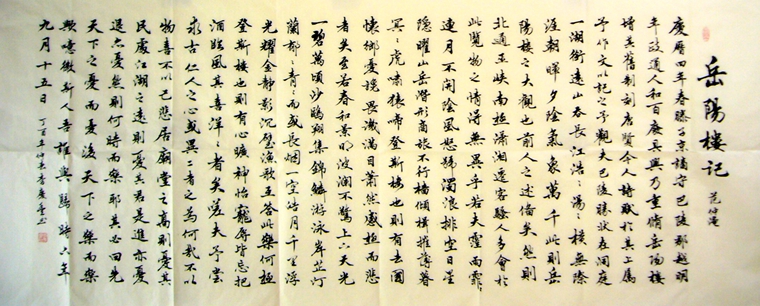 岳陽樓記
范仲淹
慶曆四年春滕子京謫守巴陵郡越明
年政通人和百廢具興乃重脩岳陽樓
增其舊制刻唐賢今人詩賦於其上屬
予作文以記之予觀夫巴陵勝狀在洞庭
一湖銜遠山吞長江浩浩湯湯橫無際
涯朝暉夕陰氣象萬千此則岳
陽樓之大觀也前人之述備矣然則
北通巫峽南極瀟湘遷客騷人多會於
此覽物之情得無異乎若夫霪雨霏霏
連月不開陰風怒號濁浪排空日星
隱曜山岳潛形商旅不行檣傾楫摧薄暮
冥冥虎嘯猿啼登斯樓也則有去國
懷鄉憂讒畏譏滿目蕭然感極而悲
者矣至若春和景明波瀾不驚上下天光
一碧萬頃沙鷗翔集錦鱗游泳岸芷汀
蘭郁郁青青而或長煙一空皓月千里浮
光耀金靜影沉璧漁歌互答此樂何極
登斯樓也則有心曠神怡寵辱皆忘把
酒臨風其喜洋洋者矣嗟夫予嘗
求古仁人之心或異二者之為何哉不以
物喜不以己悲居廟堂之高則憂其
民處江湖之遠則憂其君是進亦憂
退亦憂然則何時而樂耶其必曰先
天下之憂而憂後天下之樂而樂
歟噫微斯人吾誰與歸時六年
九月十五日